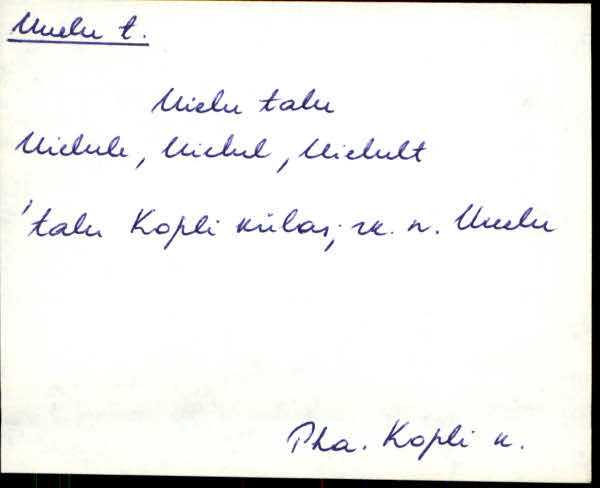 Uuelu t.
Uielu talu
Uielule, Uielul, Uielult
'talu Kopli külas; rk. n. Uuelu
Pha. Kopli k.